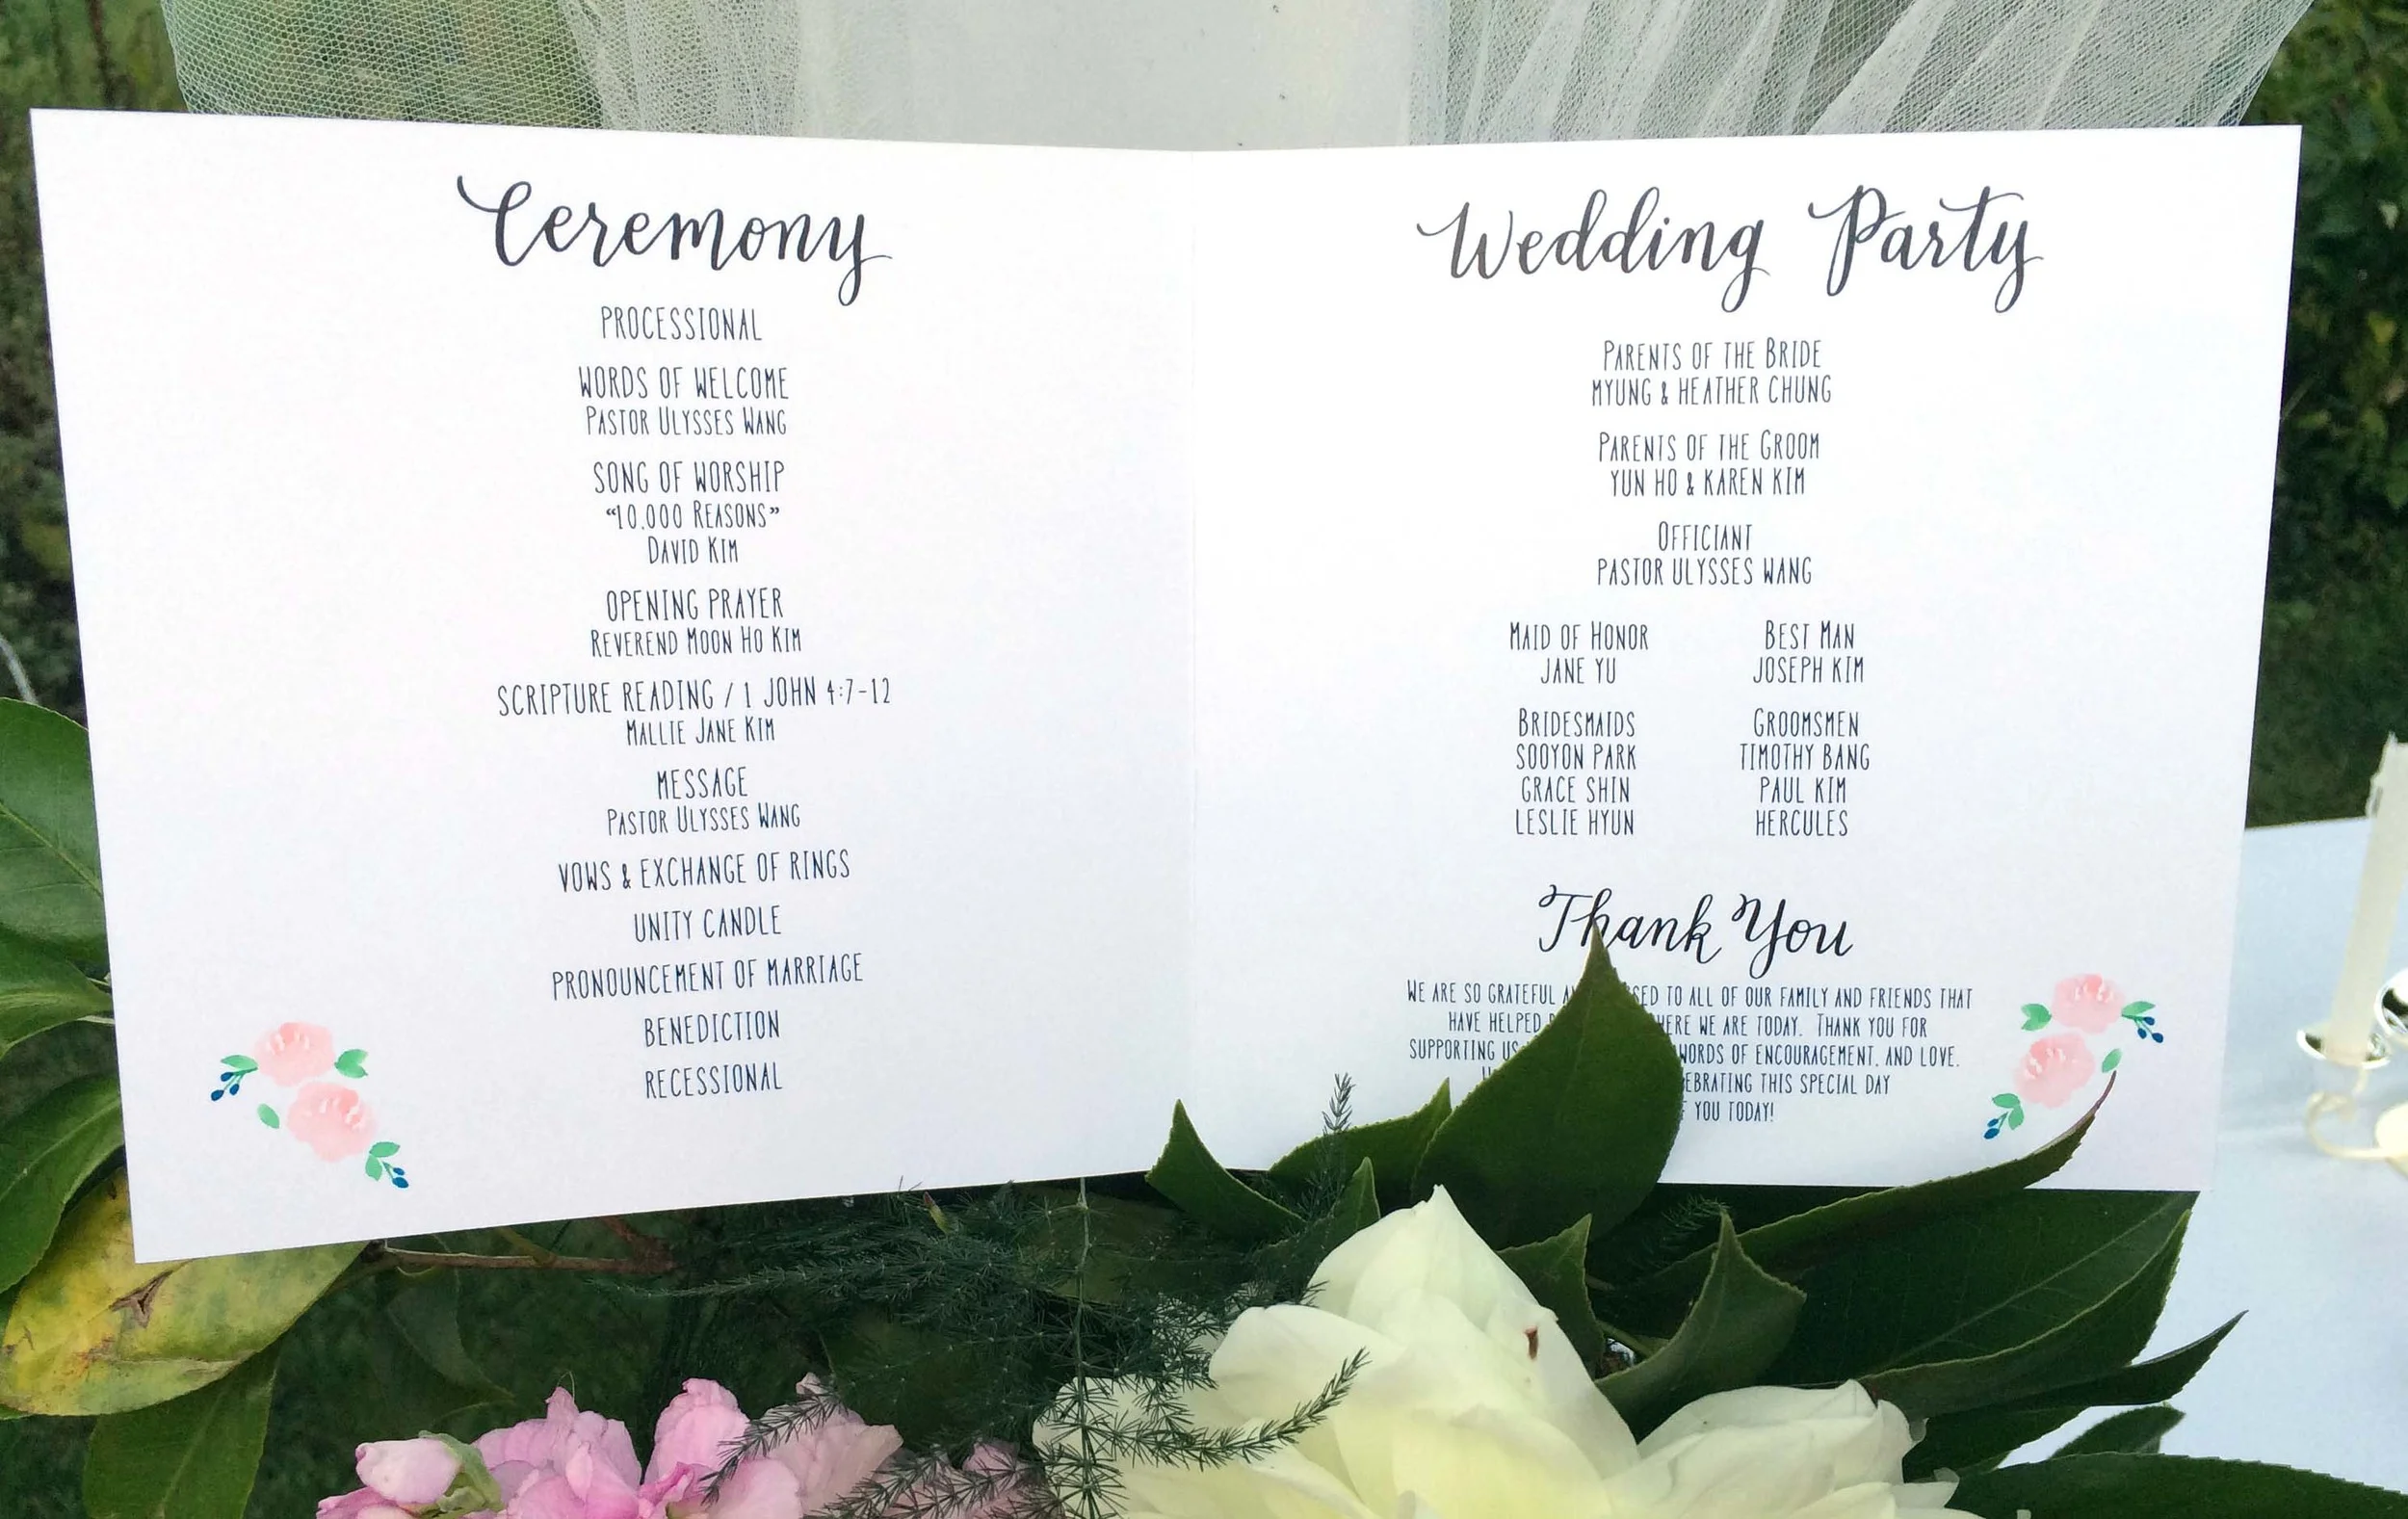 Ceremony
PROCESSIONAL
WORDS OF WELCOME
PASTOR ULYSSES WANG
SONG OF WORSHIP
“10,000 REASONS”
DAVID KIM
OPENING PRAYER
REVEREND MOON HO KIM
SCRIPTURE READING / 1 JOHN 4:7-12
MALLIE JANE KIM
MESSAGE
PASTOR ULYSSES WANG
VOWS & EXCHANGE OF RINGS
UNITY CANDLE
PRONOUNCEMENT OF MARRIAGE
BENEDICTION
RECESSIONAL
Wedding Party
PARENTS OF THE BRIDE
MYUNG & HEATHER CHUNG
PARENTS OF THE GROOM
YUN HO & KAREN KIM
OFFICIANT
PASTOR ULYSSES WANG
MAID OF HONOR
JANE YU
BEST MAN
JOSEPH KIM
BRIDESMAIDS
SOOYON PARK
GRACE SHIN
LESLIE HYUN
GROOMSMEN
TIMOTHY BANG
PAUL KIM
HERCULES
Thank You
WE ARE SO GRATEFUL TO ALL OF OUR FAMILY AND FRIENDS THAT
HAVE HELPED WE ARE TODAY. THANK YOU FOR
SUPPORTING US WORDS OF ENCOURAGEMENT, AND LOVE.
THIS SPECIAL DAY
YOU TODAY!